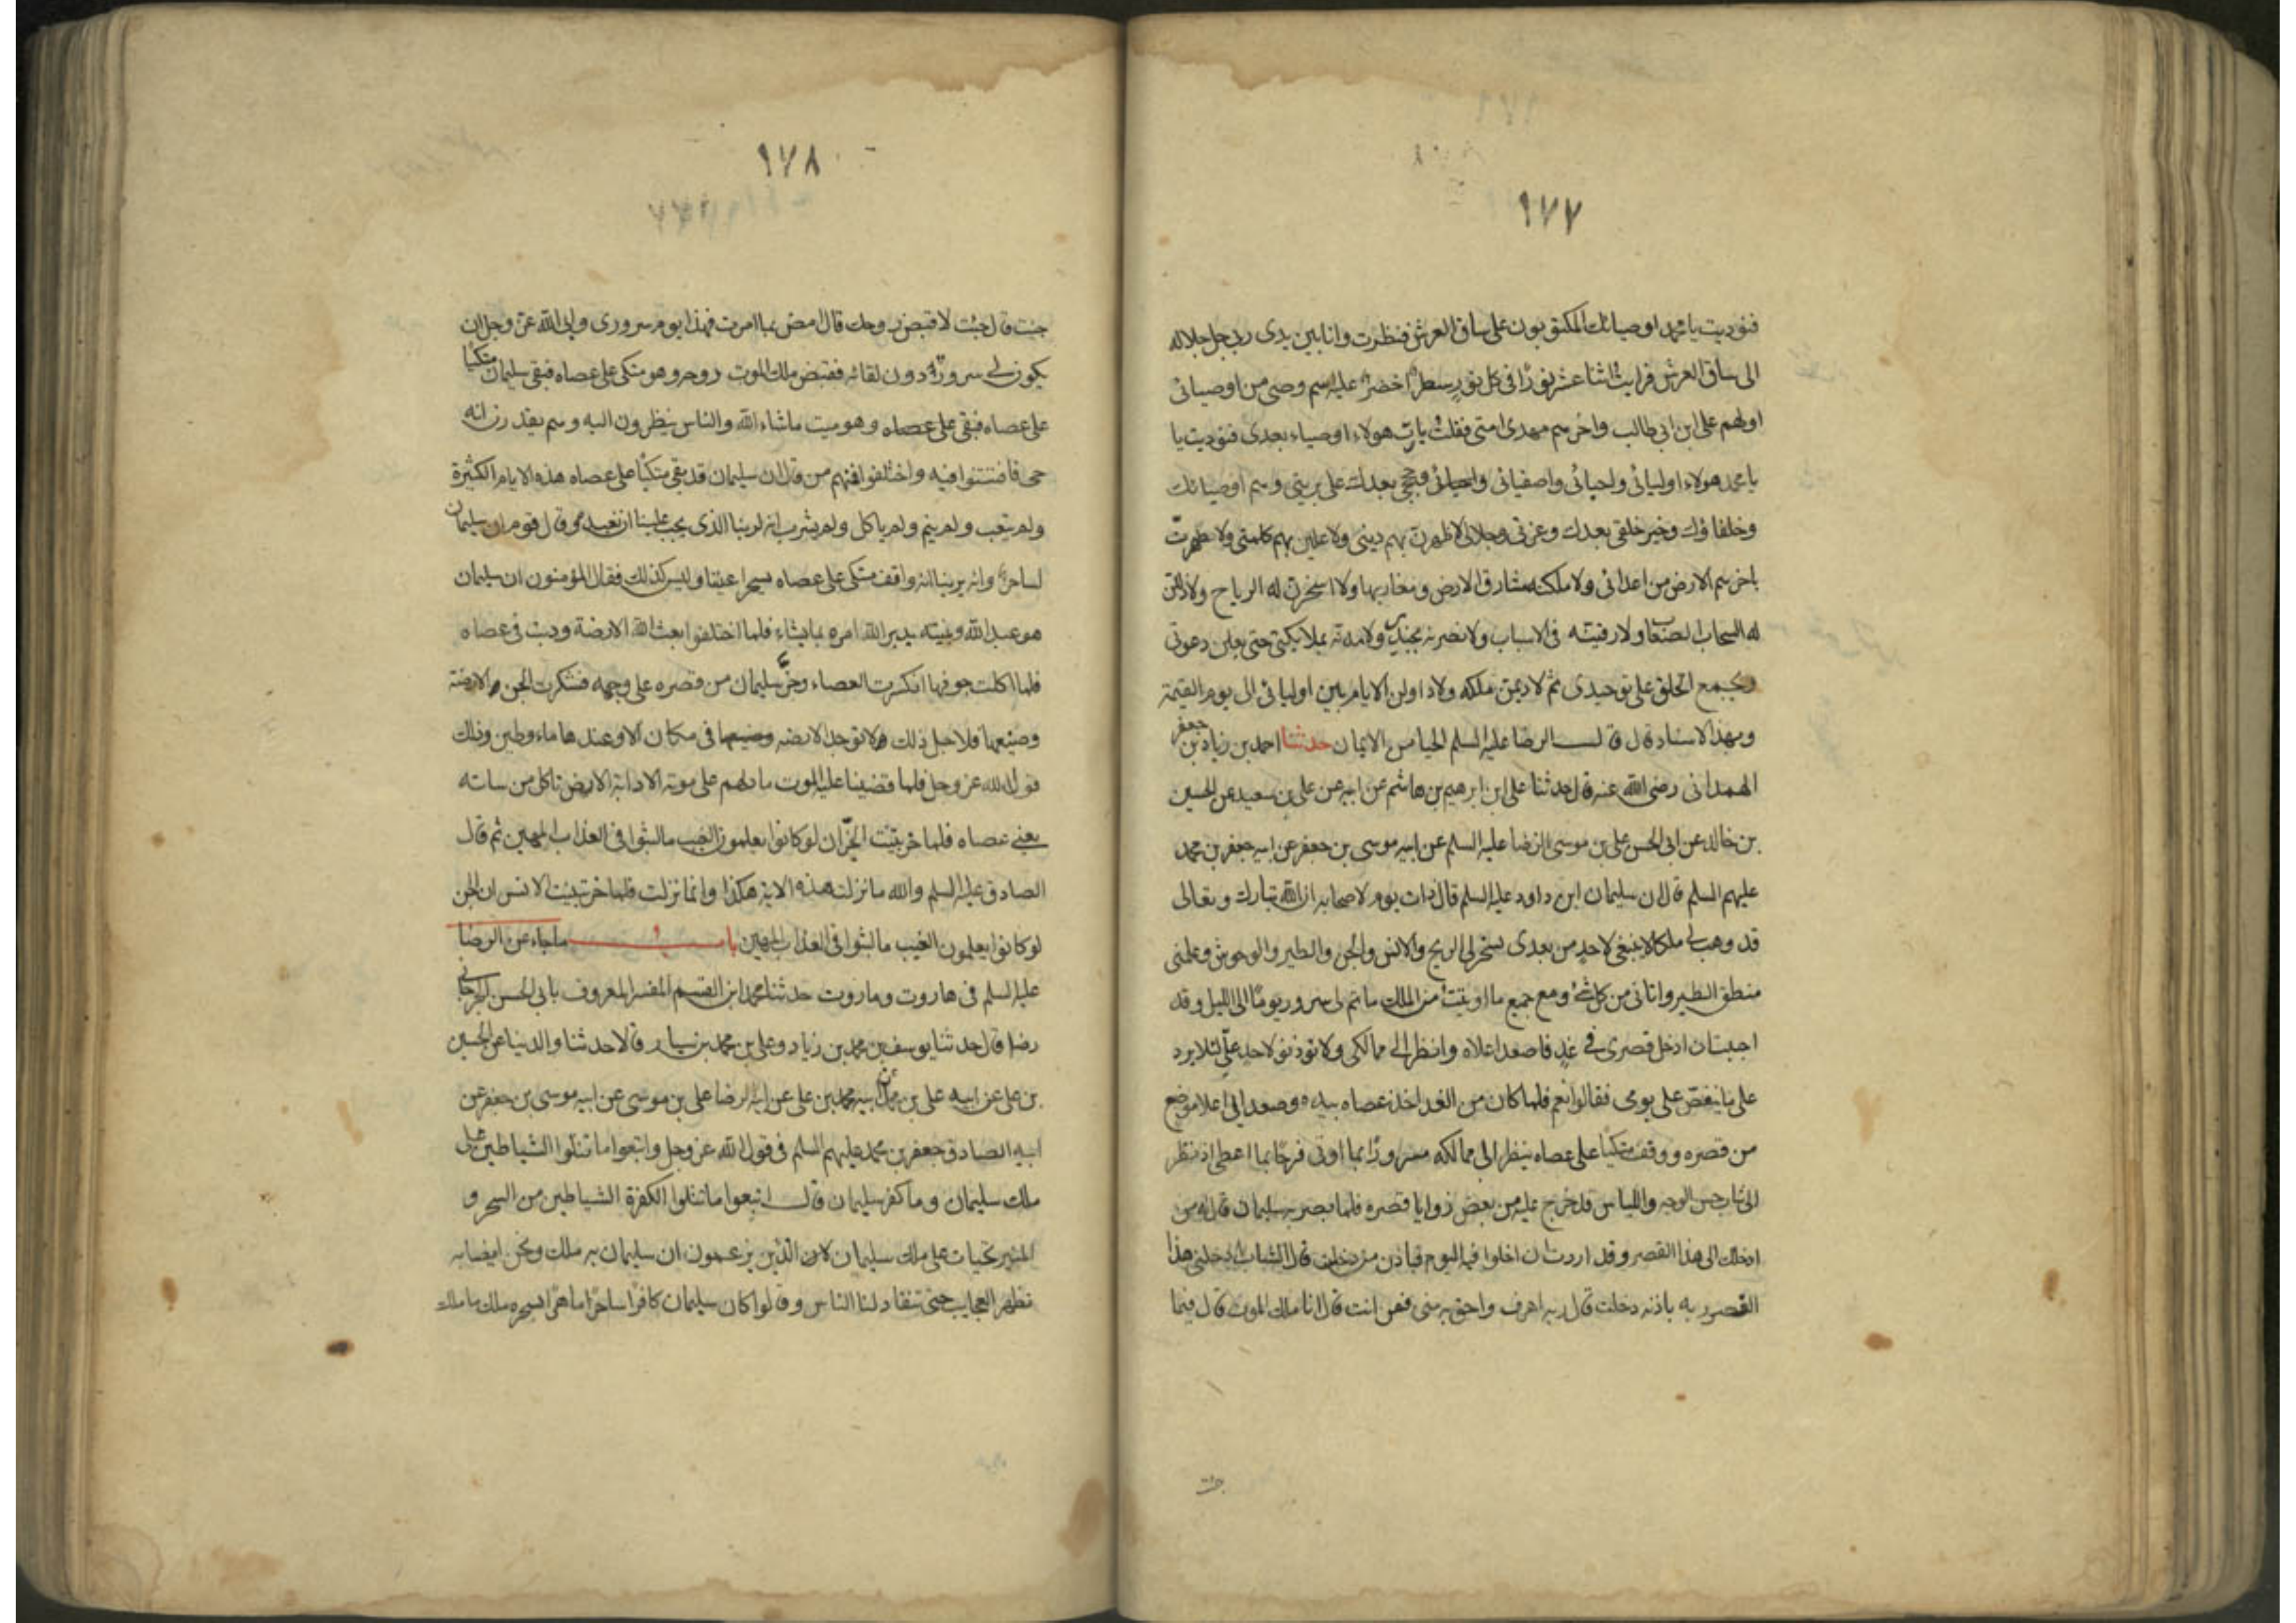 ١٧٧
فنوديت يا محمد اوصيائك المكتوبون على ساق العرش فنظرت وانا بين يدى ربى جل جلاله
الى ساق العرش فرايت اثنا عشر نورًا فى كل نور سطرًا اخضرًا عليه اسم وصى من اوصيائى
اولهم على ابن ابى طالب واخرهم مهدى امتى فقلت يا رب هولاء اوصياء بعدى فنوديت يا
يا محمد هولاء اوليائى واحبائى واصفيائى وحججى بعدك على بريتى وهم اوصيائك
وخلفاؤك وخير خلقى بعدك وعزتى وجلالى لاظهرن بهم دينى ولاعلين بهم كلمتى ولاطهرن
باخرهم الارض من اعدائى ولاملكنه مشارق الارض ومغاربها ولاسخرن له الرياح ولاذللن
له السحاب الصعاب ولارقينه فى الاسباب ولانصرنه بجندى ولامدنه بملائكتى حتى يعلن دعوتى
ويجمع الخلق على توحيدى ثم لاديمن ملكه ولاداولن الايام بين اوليائى الى يوم القيمة
وبهذا الاسناد قال قال الرضا عليه السلم الحيا من الايمان حدثنا احمد بن زياد بن جعفر
الهمدانى رضى الله عنه قال حدثنا على ابن ابرهيم بن هاشم عن ابيه عن على بن سعيد عن الحسين
بن خالد عن ابى الحسن على بن موسى الرضا عليه السلم عن ابيه موسى بن جعفر عن ابيه جعفر بن محمد
عليهم السلم قال ان سليمان ابن داود عليه السلم قال ذات يوم لاصحابه ان الله تبارك وتعالى
قد وهب لى ملكا لا ينبغى لاحد من بعدى سخر لى الريح والانس والجن والطير والوحوش وعلمنى
منطق الطير واتانى من كل شئ ومع جميع ما اوتيت من الملك ما تم لى سرور يومًا الى الليل وقد
اجبت ان ادخل قصرى فى غدٍ فاصعد اعلاه وانظر الى ممالكى ولا توذنوا لاحد علىّ لئلا يرد
على ما ينغص على يومى فقالوا نعم فلما كان من الغد اخذ عصاه بيده وصعد الى اعلا موضع
من قصره ووقف متكيًا على عصاه ينظر الى ممالكه مسرورًا بما اوتى فرحًا بما اعطى اذ نظر
الى شاب حسن الوجه واللباس قد خرج عليه من بعض زوايا قصره فلما بصر به سليمان قال له من
ادخلك الى هذا القصر وقد اردت ان اخلوا فيه اليوم فباذن من دخلت قال الشاب ادخلنى هذا
القصر ربه باذنه دخلت قال ربه احق به منى فمن انت قال انا ملك الموت قال فيما
جئت
١٧٨
جئت قال جئت لاقبض روحك قال امض بما امرت فهذا يوم سرورى وابى الله عز وجل ان
يكون لى سرورًا دون لقائه فقبض ملك الموت روحه وهو متكى على عصاه فبقى سليمان متكيًا
على عصاه فبقى على عصاه وهو ميت ماشاء الله والناس ينظرون اليه وهم يقدرن انه
حى فافتتنوا فيه واختلفوا فمنهم من قال ان سليمان قد بقى متكيًا على عصاه هذه الايام الكثيرة
ولم يتعب ولم ينم ولم ياكل ولم يشرب انه لربنا الذى يجب علينا ان نعبده وقال قوم ان سليمان
لساحرًا وانه يرينا انه واقف متكى على عصاه بسحر اعيننا وليس كذلك فقال المؤمنون ان سليمان
هو عبد الله ونبيه يدبر الله امره بما يشاء فلما اختلفوا بعث الله الارضة ودبت فى عصاه
فلما اكلت جوفها انكسرت العصاء وخرّ سليمان من قصره على وجهه فشكرت الجن الارضة
وصنيعها فلاجل ذلك لا توجد الارضه فى مكان الا وعندها ماء وطين وذلك
قول الله عز وجل فلما قضينا عليه الموت ما دلهم على موته الا دابة الارض تاكل من ساته
يعنى عصاه فلما خر تبينت الجن ان لو كانوا يعلمون الغيب ما لبثوا فى العذاب المهين ثم قال
الصادق عليه السلم والله ما نزلت هذه الاية هكذا وانما نزلت فلما خر تبينت الانس ان الجن
لو كانوا يعلمون الغيب ما لبثوا فى العذاب المهين باب ما جاء عن الرضا
عليه السلم فى هاروت وماروت حدثنا محمد ابن القسم المفسر المعروف بابى الحسن الجرجانى
رضه قال حدثنا يوسف بن محمد بن زياد وعلى بن محمد بن سيار قالا حدثنا والدينا عن الحسين
بن على عن ابيه على بن محمد عن ابيه محمد بن على عن ابيه الرضا على بن موسى عن ابيه موسى بن جعفر عن
ابيه الصادق جعفر بن محمد عليهم السلم فى قول الله عز وجل واتبعوا ما تتلوا الشياطين على
ملك سليمان وما كفر سليمان قال اتبعوا ما تتلوا الكفرة الشياطين من السحر و
النيرنجيات على ملك سليمان الذين يزعمون ان سليمان به ملك ونحن ايضا به
نظهر العجايب حتى تنقاد لنا الناس وقالوا كان سليمان كافرًا ساحرًا ماهرًا بسحره ملك ما ملك